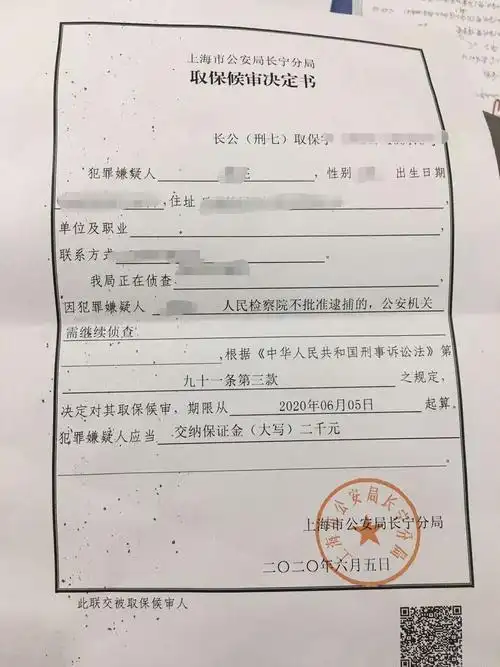 上海市公安局长宁分局
取保候审决定书
长公(刑七)取保字
犯罪嫌疑人 性别 出生日期
,住址
单位及职业
联系方式
我局正在侦查
因犯罪嫌疑人 人民检察院不批准逮捕的,公安机关
需继续侦查
,根据《中华人民共和国刑事诉讼法》第
九十一条第三款 之规定,
决定对其取保候审,期限从 2020年06月05日 起算。
犯罪嫌疑人应当 交纳保证金(大写)二千元
上海市公安局长宁分局
上海市公安局长宁分局
二〇二〇年六月五日
此联交被取保候审人